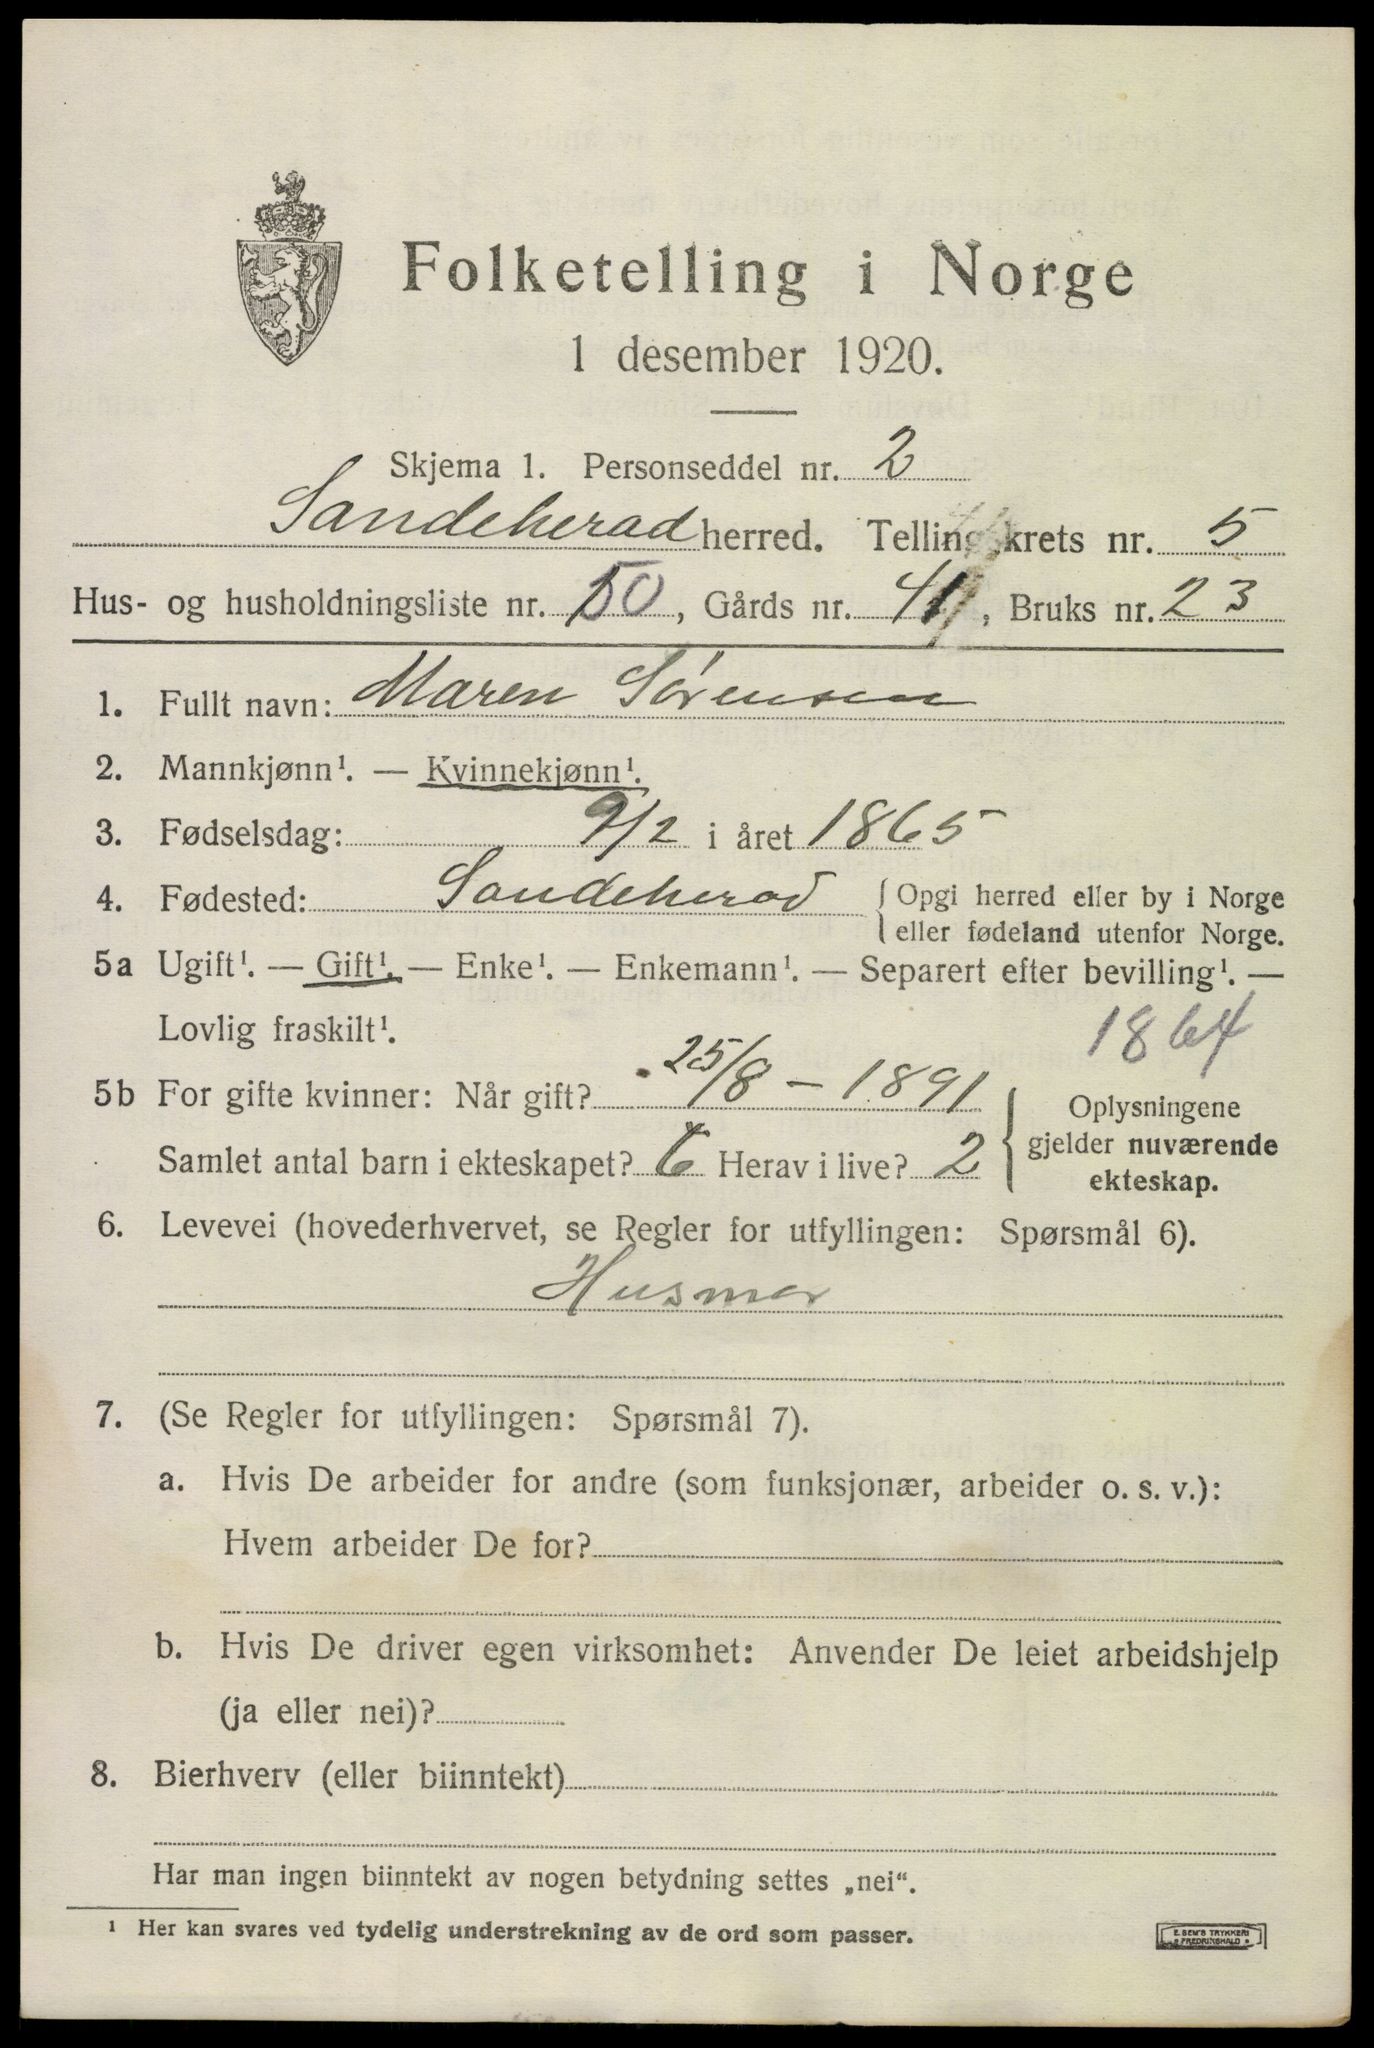 Folketelling i Norge
1 desember 1920.
Skjema 1. Personseddel nr. 2
Sandeherad herred. Tellingskrets nr. 5
Hus- og husholdningsliste nr. 50, Gårds nr. 41, Bruks nr. 23
1. Fullt navn: Maren Sørensen
2. Mannkjønn¹. — Kvinnekjønn¹.
3. Fødselsdag: 9/2 i året 1865
4. Fødested: Sandeherad { Opgi herred eller by i Norge
eller fødeland utenfor Norge.
5a Ugift¹. — Gift¹. — Enke¹. — Enkemann¹. — Separert efter bevilling¹. —
Lovlig fraskilt¹.
1864
5b For gifte kvinner: Når gift? 25/8 – 1891
Samlet antal barn i ekteskapet? 6 Herav i live? 2
Oplysningene
gjelder nuværende
ekteskap.
6. Levevei (hovederhvervet, se Regler for utfyllingen: Spørsmål 6).
Husmor
7. (Se Regler for utfyllingen: Spørsmål 7).
a. Hvis De arbeider for andre (som funksjonær, arbeider o. s. v.):
Hvem arbeider De for?
b. Hvis De driver egen virksomhet: Anvender De leiet arbeidshjelp
(ja eller nei)?
8. Bierhverv (eller biinntekt)
Har man ingen biinntekt av nogen betydning settes „nei“.
¹ Her kan svares ved tydelig understrekning av de ord som passer.
E. SEM'S TRYKKERI
FREDRIKSHALD